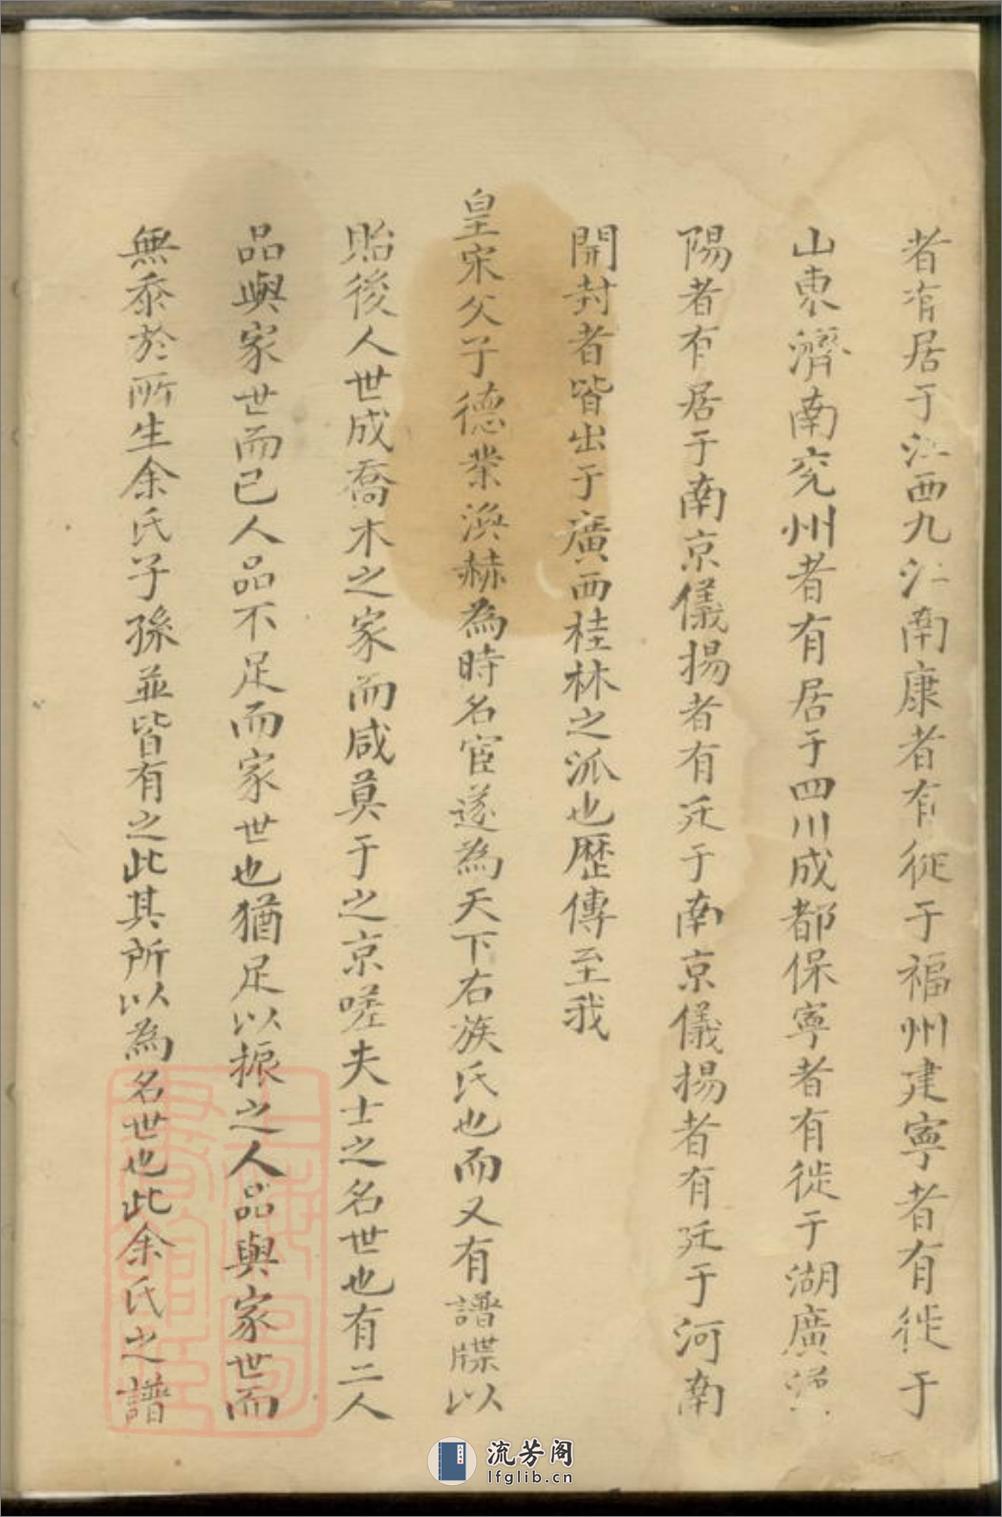 者有居于江西九江南康者有徙于福州建寧者有徙于
山東濟南兖州者有居于四川成都保寧者有徙于湖廣
陽者有居于南京儀揚者有迁于南京儀揚者有迁于河南
開封者皆出于廣西桂林之派也歷傳至我
皇宋父子德業渙赫為時名宦遂為天下右族氏也而又有譜牒以
貽後人世成喬木之家而咸莫于之京嗟夫士之名世也有二人
品與家世而已人品不足而家世也猶足以振之人品與家世而
無忝於所生余氏子孫並皆有之此其所以為名世也此余氏之譜
流芳阁
lfglib.cn